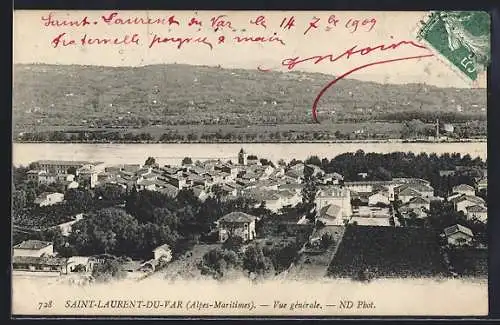 Saint-Laurent du Var le 14 7bre 1909
fraternelle poignée à main
Antoine
728 SAINT-LAURENT-DU-VAR (Alpes-Maritimes). — Vue générale. — ND Phot.